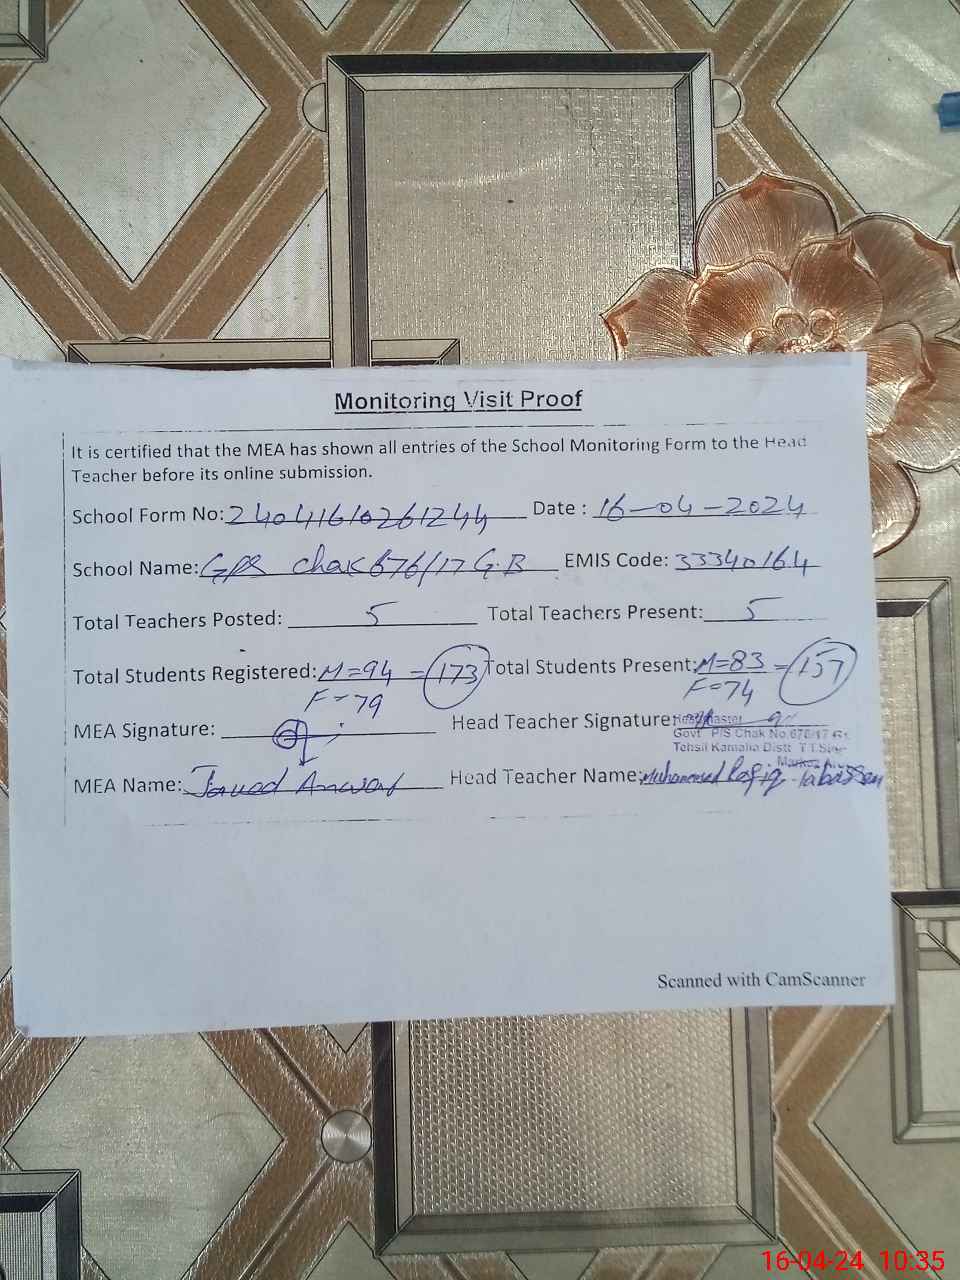 Monitoring Visit Proof
It is certified that the MEA has shown all entries of the School Monitoring Form to the Head
Teacher before its online submission.
School Form No: 24041610261244 Date : 16-04-2024
School Name: GPS chak 676/17 G.B EMIS Code: 33340164
Total Teachers Posted: 5 Total Teachers Present: 5
Total Students Registered: M=94 = 173 Total Students Present: M=83 = 157
F=79 F=74
MEA Signature: Head Teacher Signature:
Headmaster
Govt P/S Chak No.676/17
Tehsil Kamalia Distt T.T.
MEA Name: Javed Anwar Head Teacher Name: Muhammad Rafiq Tabassam
Scanned with CamScanner
16-04-24 10:35